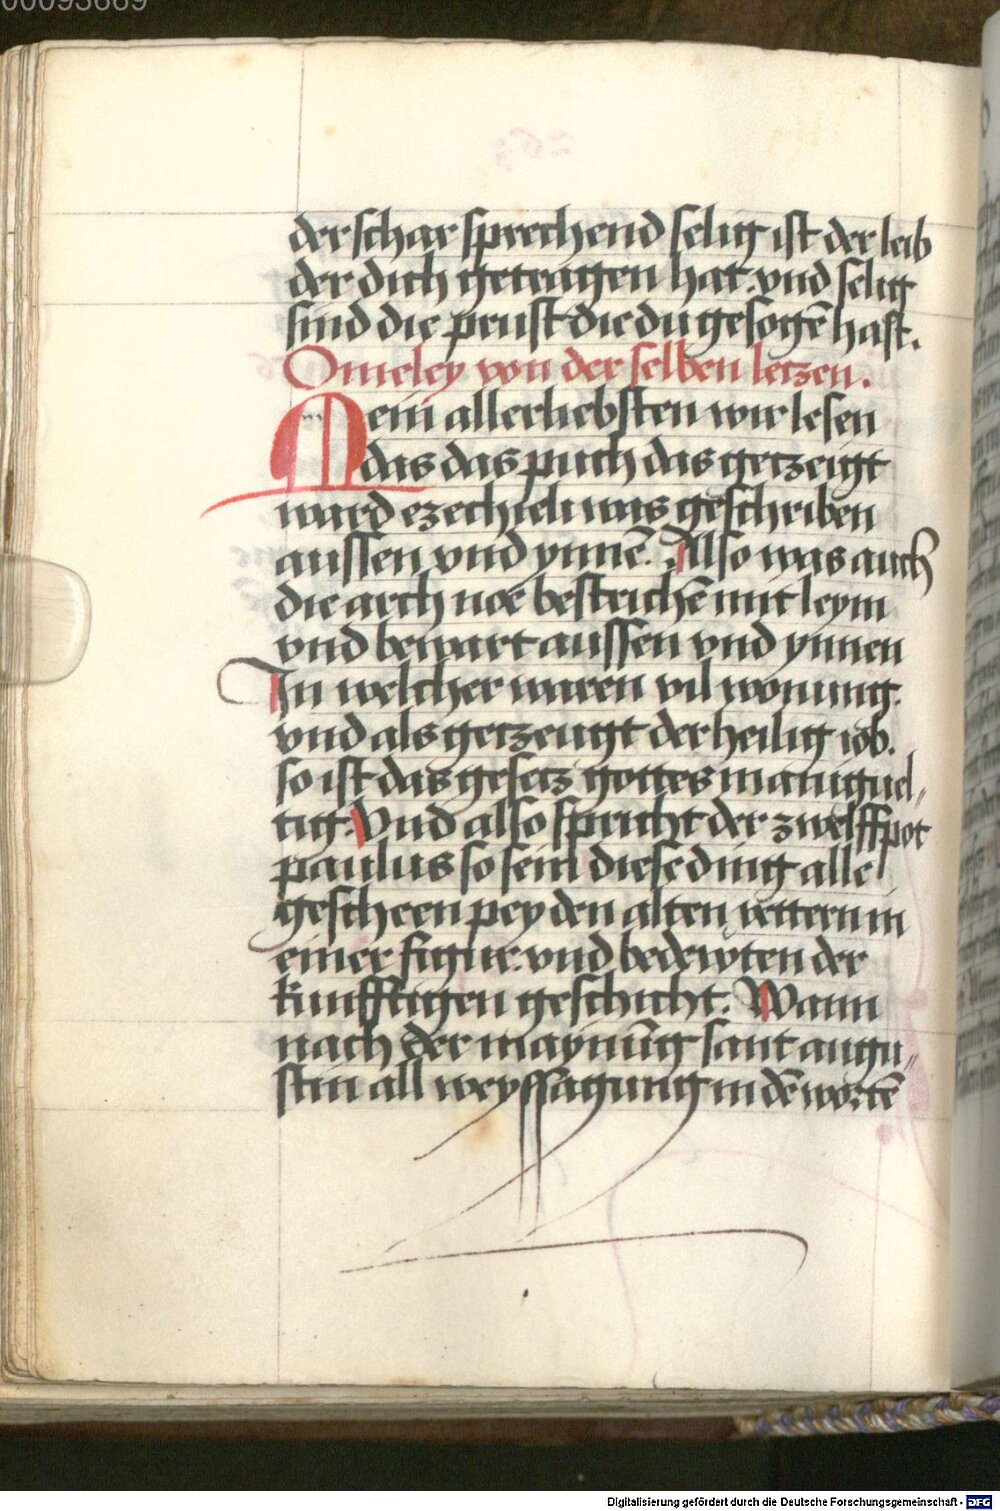 00093669
der schar sprechend selig ist der leib
der dich getragen hat. vnd selig
sind die prust die du gesogē hast.
Omeley von der selben letzen.
Mein allerliebsten wir lesen
das das puch das getzeigt
ward ezechieli was geschriben
aussen vnd ynnē. Also was auch
die arch noe bestrichē mit leym
vnd bewart aussen vnd ynnen
In welcher waren vil wonung.
vnd als getzeugt der heilig iob.
so ist das gesetz gottes maniguel„
tig. Vnd also spricht der zwelffpot
paulus so sein diese ding alle
gescheen pey den alten vettern in
einer figur. vnd bedewten der
kunfftigen geschicht. Wann
nach der maynūg sant augu„
stin all weyssagung in dē wortē
Digitalisierung gefördert durch die Deutsche Forschungsgemeinschaft - DFG